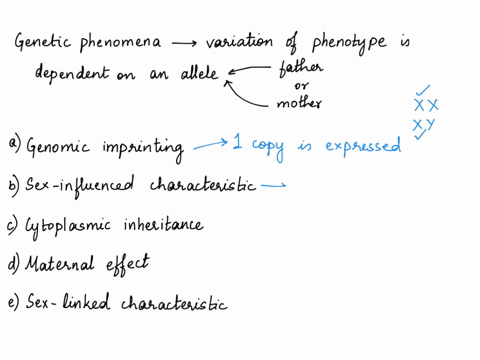 Genetic phenomena → variation of phenotype is
dependent on an allele ← father
or
mother
XX
X,Y
a) Genomic imprinting → 1 copy is expressed
b) Sex-influenced characteristic →
c) Cytoplasmic inheritance
d) Maternal effect
e) Sex-linked characteristic